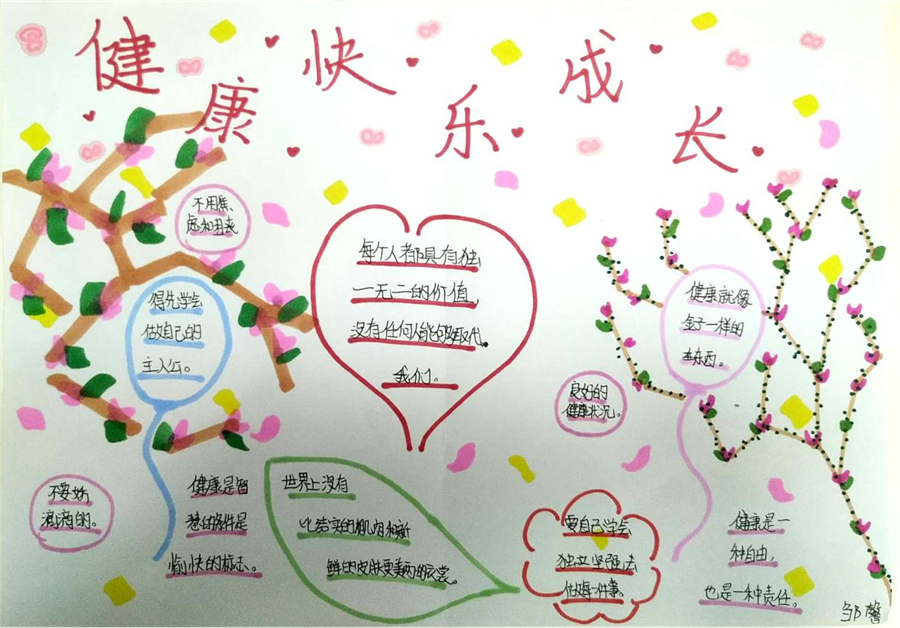 健康快乐成长
不用焦、
虑和沮丧
得先学会
做自己的
主人公。
每个人都具有独
一无二的价值,
没有任何人能够取代
我们。
健康就像
金子一样的
东西。
良好的
健康状况。
不要娇
滴滴的。
健康是智
慧的条件是
愉快的标志。
世界上没有
比结实的肌肉和新
鲜的皮肤更美丽的衣裳。
要自己学会
独立坚强,去
做每一件事。
健康是一
种自由,
也是一种责任。
邹馨